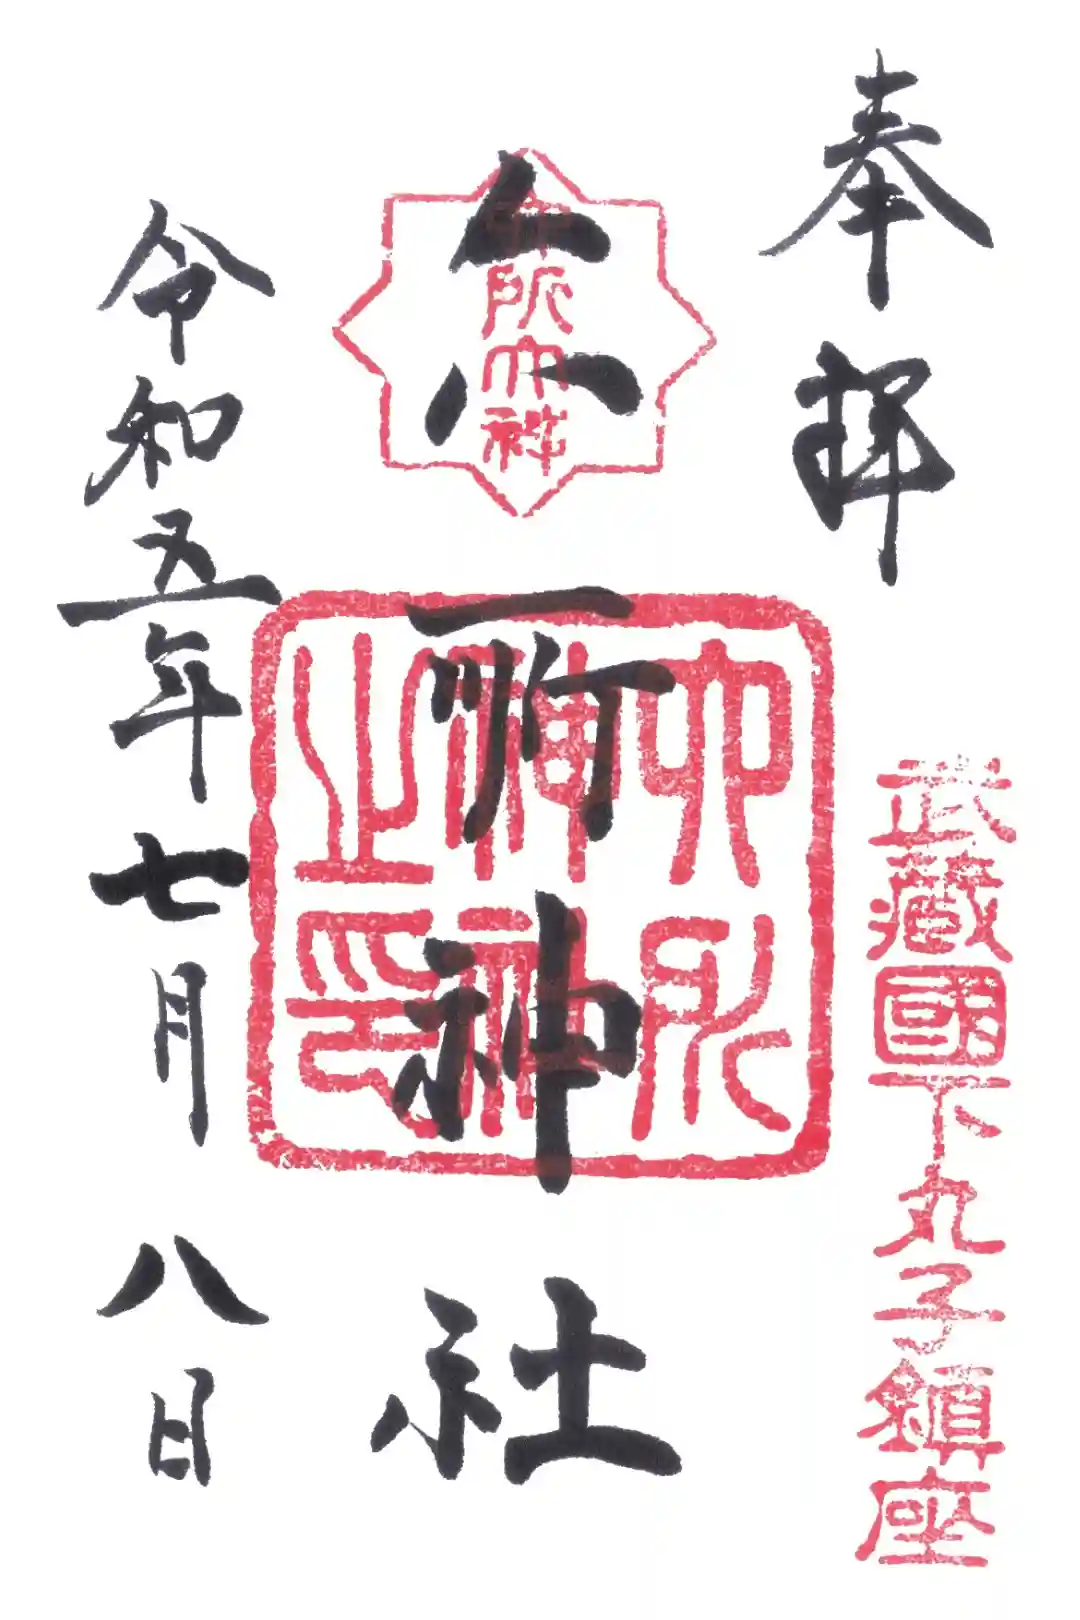 奉拝
武藏國下丸子鎮座
六所神社
六所
神社
之印
令和五年七月八日